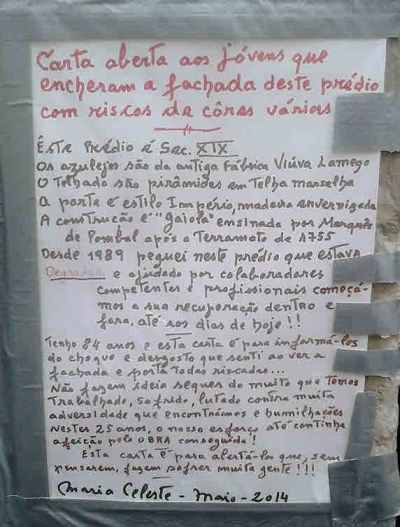 Carta aberta aos jóvens que
encheram a fachada deste prédio
com riscos de côres várias
Éste Prédio é Sec. XIX
Os azulejos são da antiga Fábrica Viúva Lamego
O Telhado são pirâmides em Telha marselha
A porta é estilo Império, madeira envernizada
A construcão é "gaiola" ensinada por Marquês
de Pombal após o Terramoto de 1755
Desde 1989 peguei neste prédio que estava
Degradado e ajudado por colaboradores
competentes e profissionais começá-
mos a sua recuperação dentro e
fora, até aos dias de hoje!!
Tenho 84 anos e esta carta é para informá-los
do choque e desgosto que senti ao ver a
fachada e porta todas riscadas...
Não fazem ideia sequer do muito que temos
Trabalhado, sofrido, lutado contra muita
adversidade que encontrámos e humilhações
Nestes 25 anos, o nosso esforço até continha
afeição pela OBRA conseguida!
Esta carta é para alertá-los que, sem
pensarem, fazem sofrer muita gente!!!
Maria Celeste - Maio - 2014